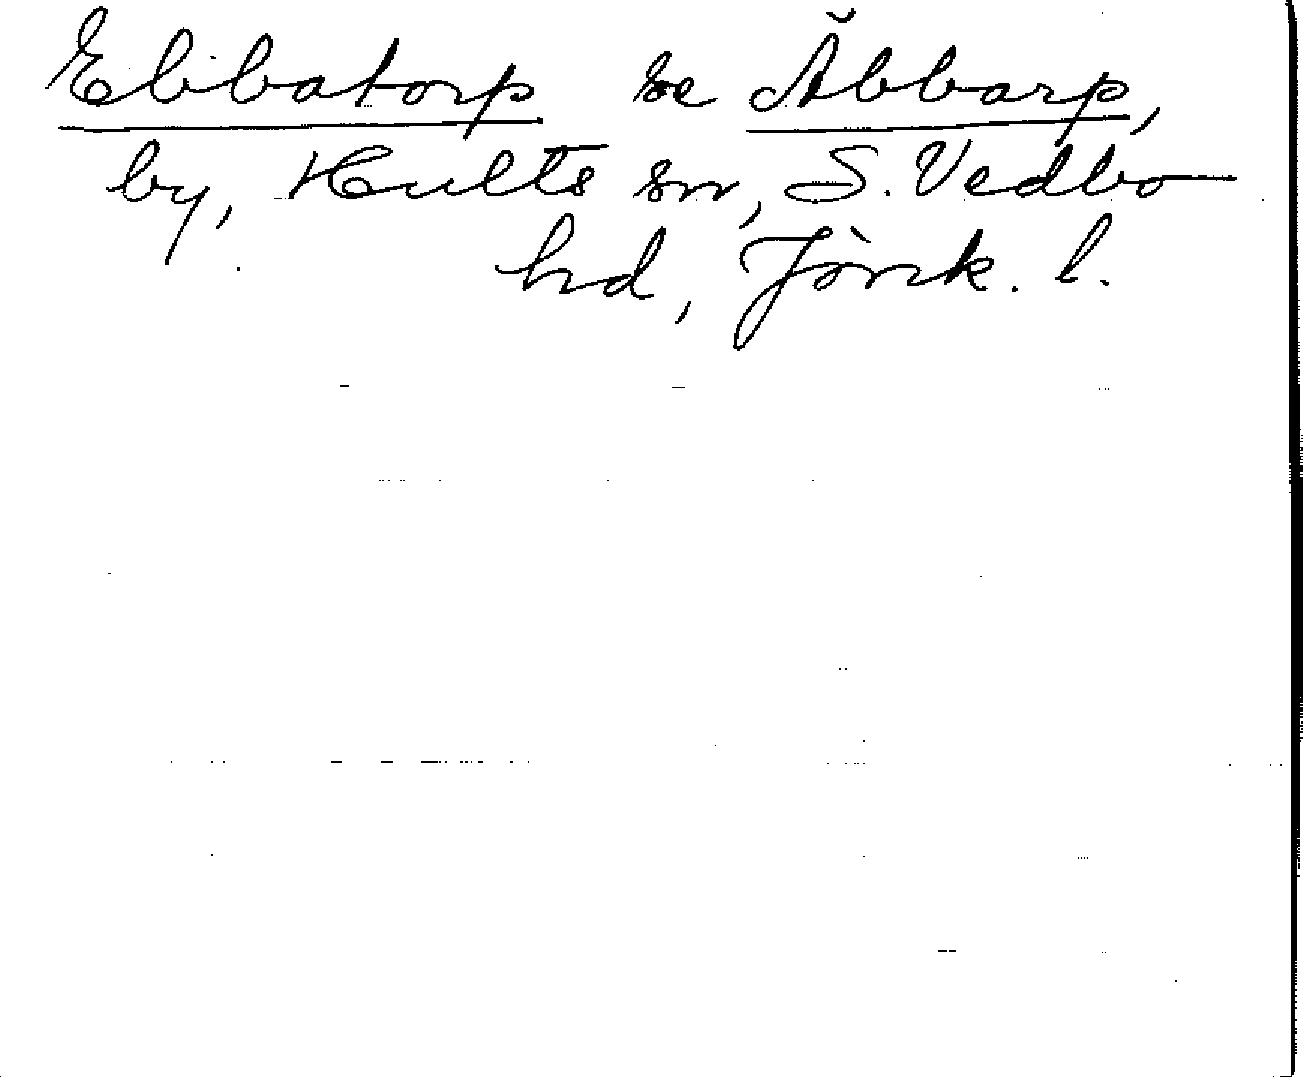 Ebbatorp se Äbbarp,
by, Hults sn, S. Vedbo
hd, Jönk. l.